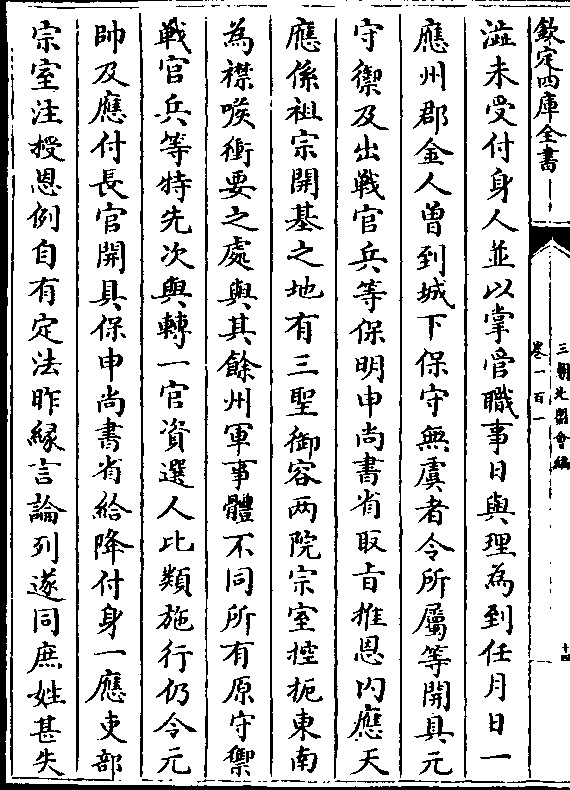 欽定四庫全書
三朝北盟會編
卷一百一
十四
澁未受付身人並以掌管職事日與理為到任月日一
應州郡金人曽到城下保守無虞者令所屬等開具元
守禦及出戰官兵等保明申尚書省取㫖推恩内應天
應係祖宗開基之地有三聖御容两院宗室控扼東南
為襟喉衝要之處與其餘州軍事體不同所有原守禦
戰官兵等特先次與轉一官資選人比類施行仍令元
帥及應付長官開具保申尚書省給降付身一應吏部
宗室注授恩例自有定法昨縁言論列遂同庶姓甚失